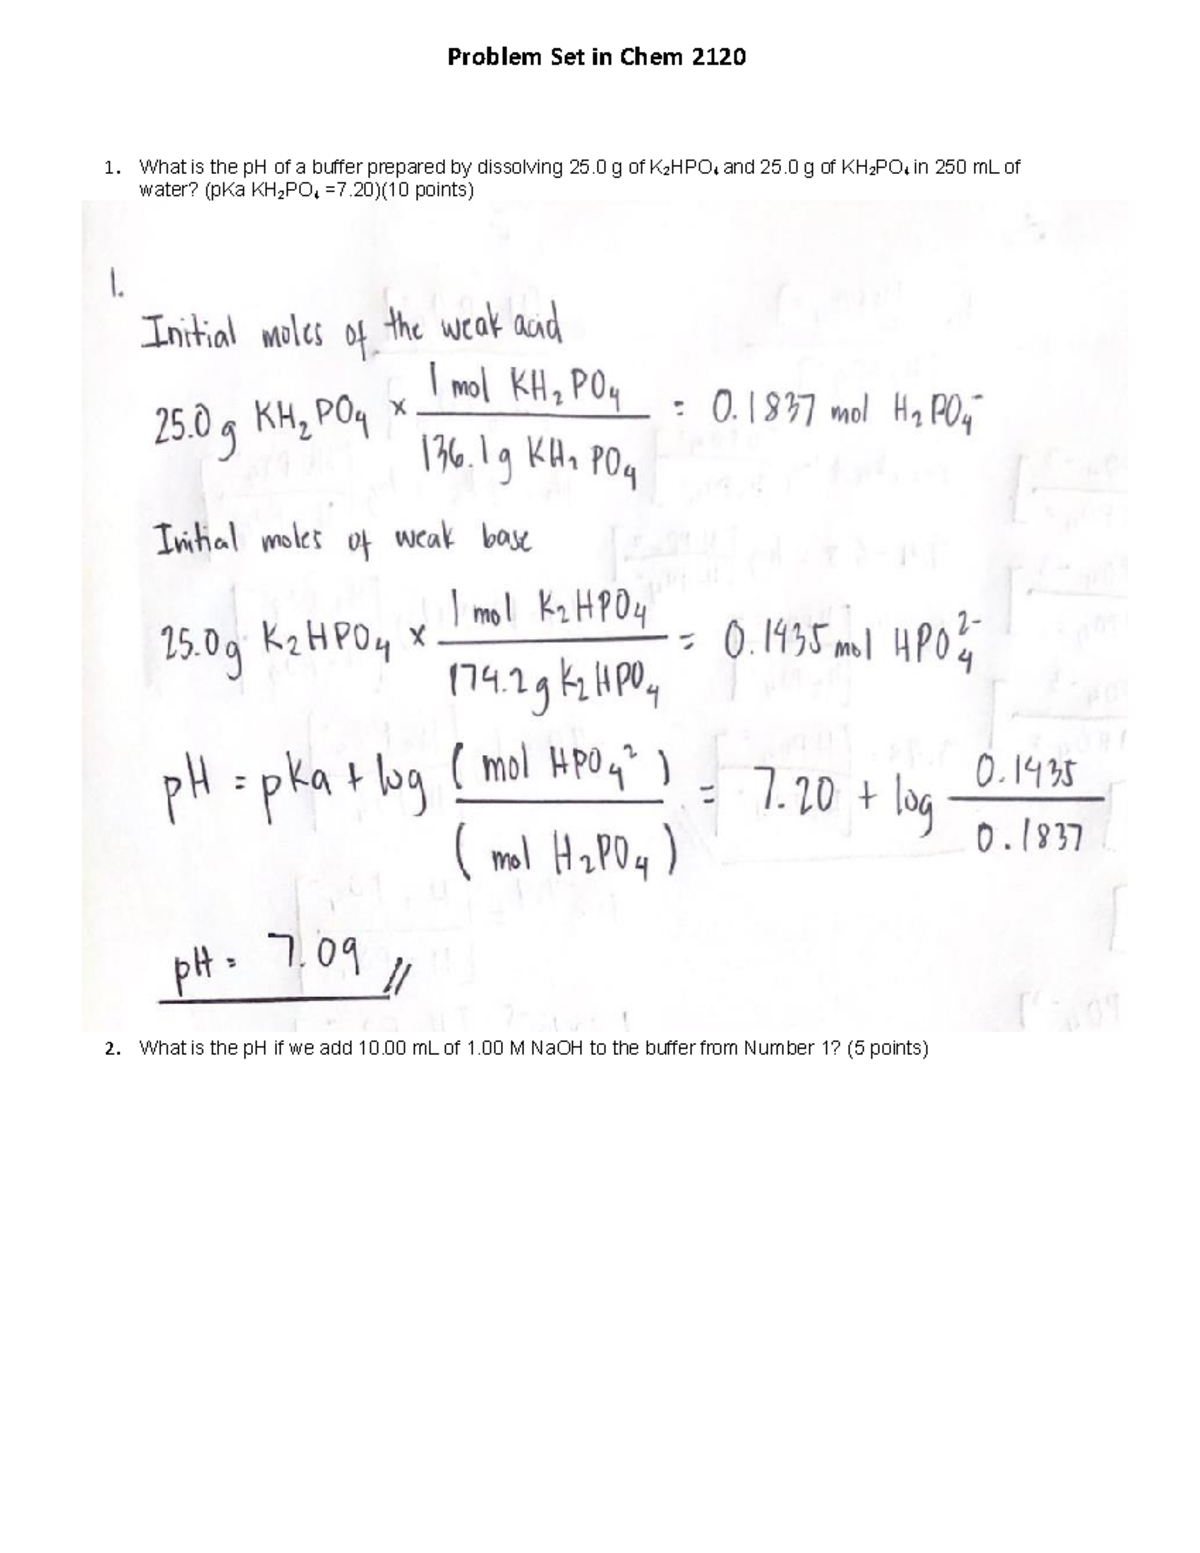 Problem Set in Chem 2120
1. What is the pH of a buffer prepared by dissolving 25.0 g of K₂HPO₄ and 25.0 g of KH₂PO₄ in 250 mL of
water? (pKa KH₂PO₄ =7.20)(10 points)
1.
Initial moles of the weak acid
25.0 g KH₂PO₄ × 1 mol KH₂PO₄ / 136.1 g KH₂PO₄ = 0.1837 mol H₂PO₄⁻
Initial moles of weak base
25.0 g K₂HPO₄ × 1 mol K₂HPO₄ / 174.2 g K₂HPO₄ = 0.1435 mol HPO₄²⁻
pH = pKa + log (mol HPO₄²) / (mol H₂PO₄) = 7.20 + log 0.1435 / 0.1837
pH = 7.09 //
2. What is the pH if we add 10.00 mL of 1.00 M NaOH to the buffer from Number 1? (5 points)